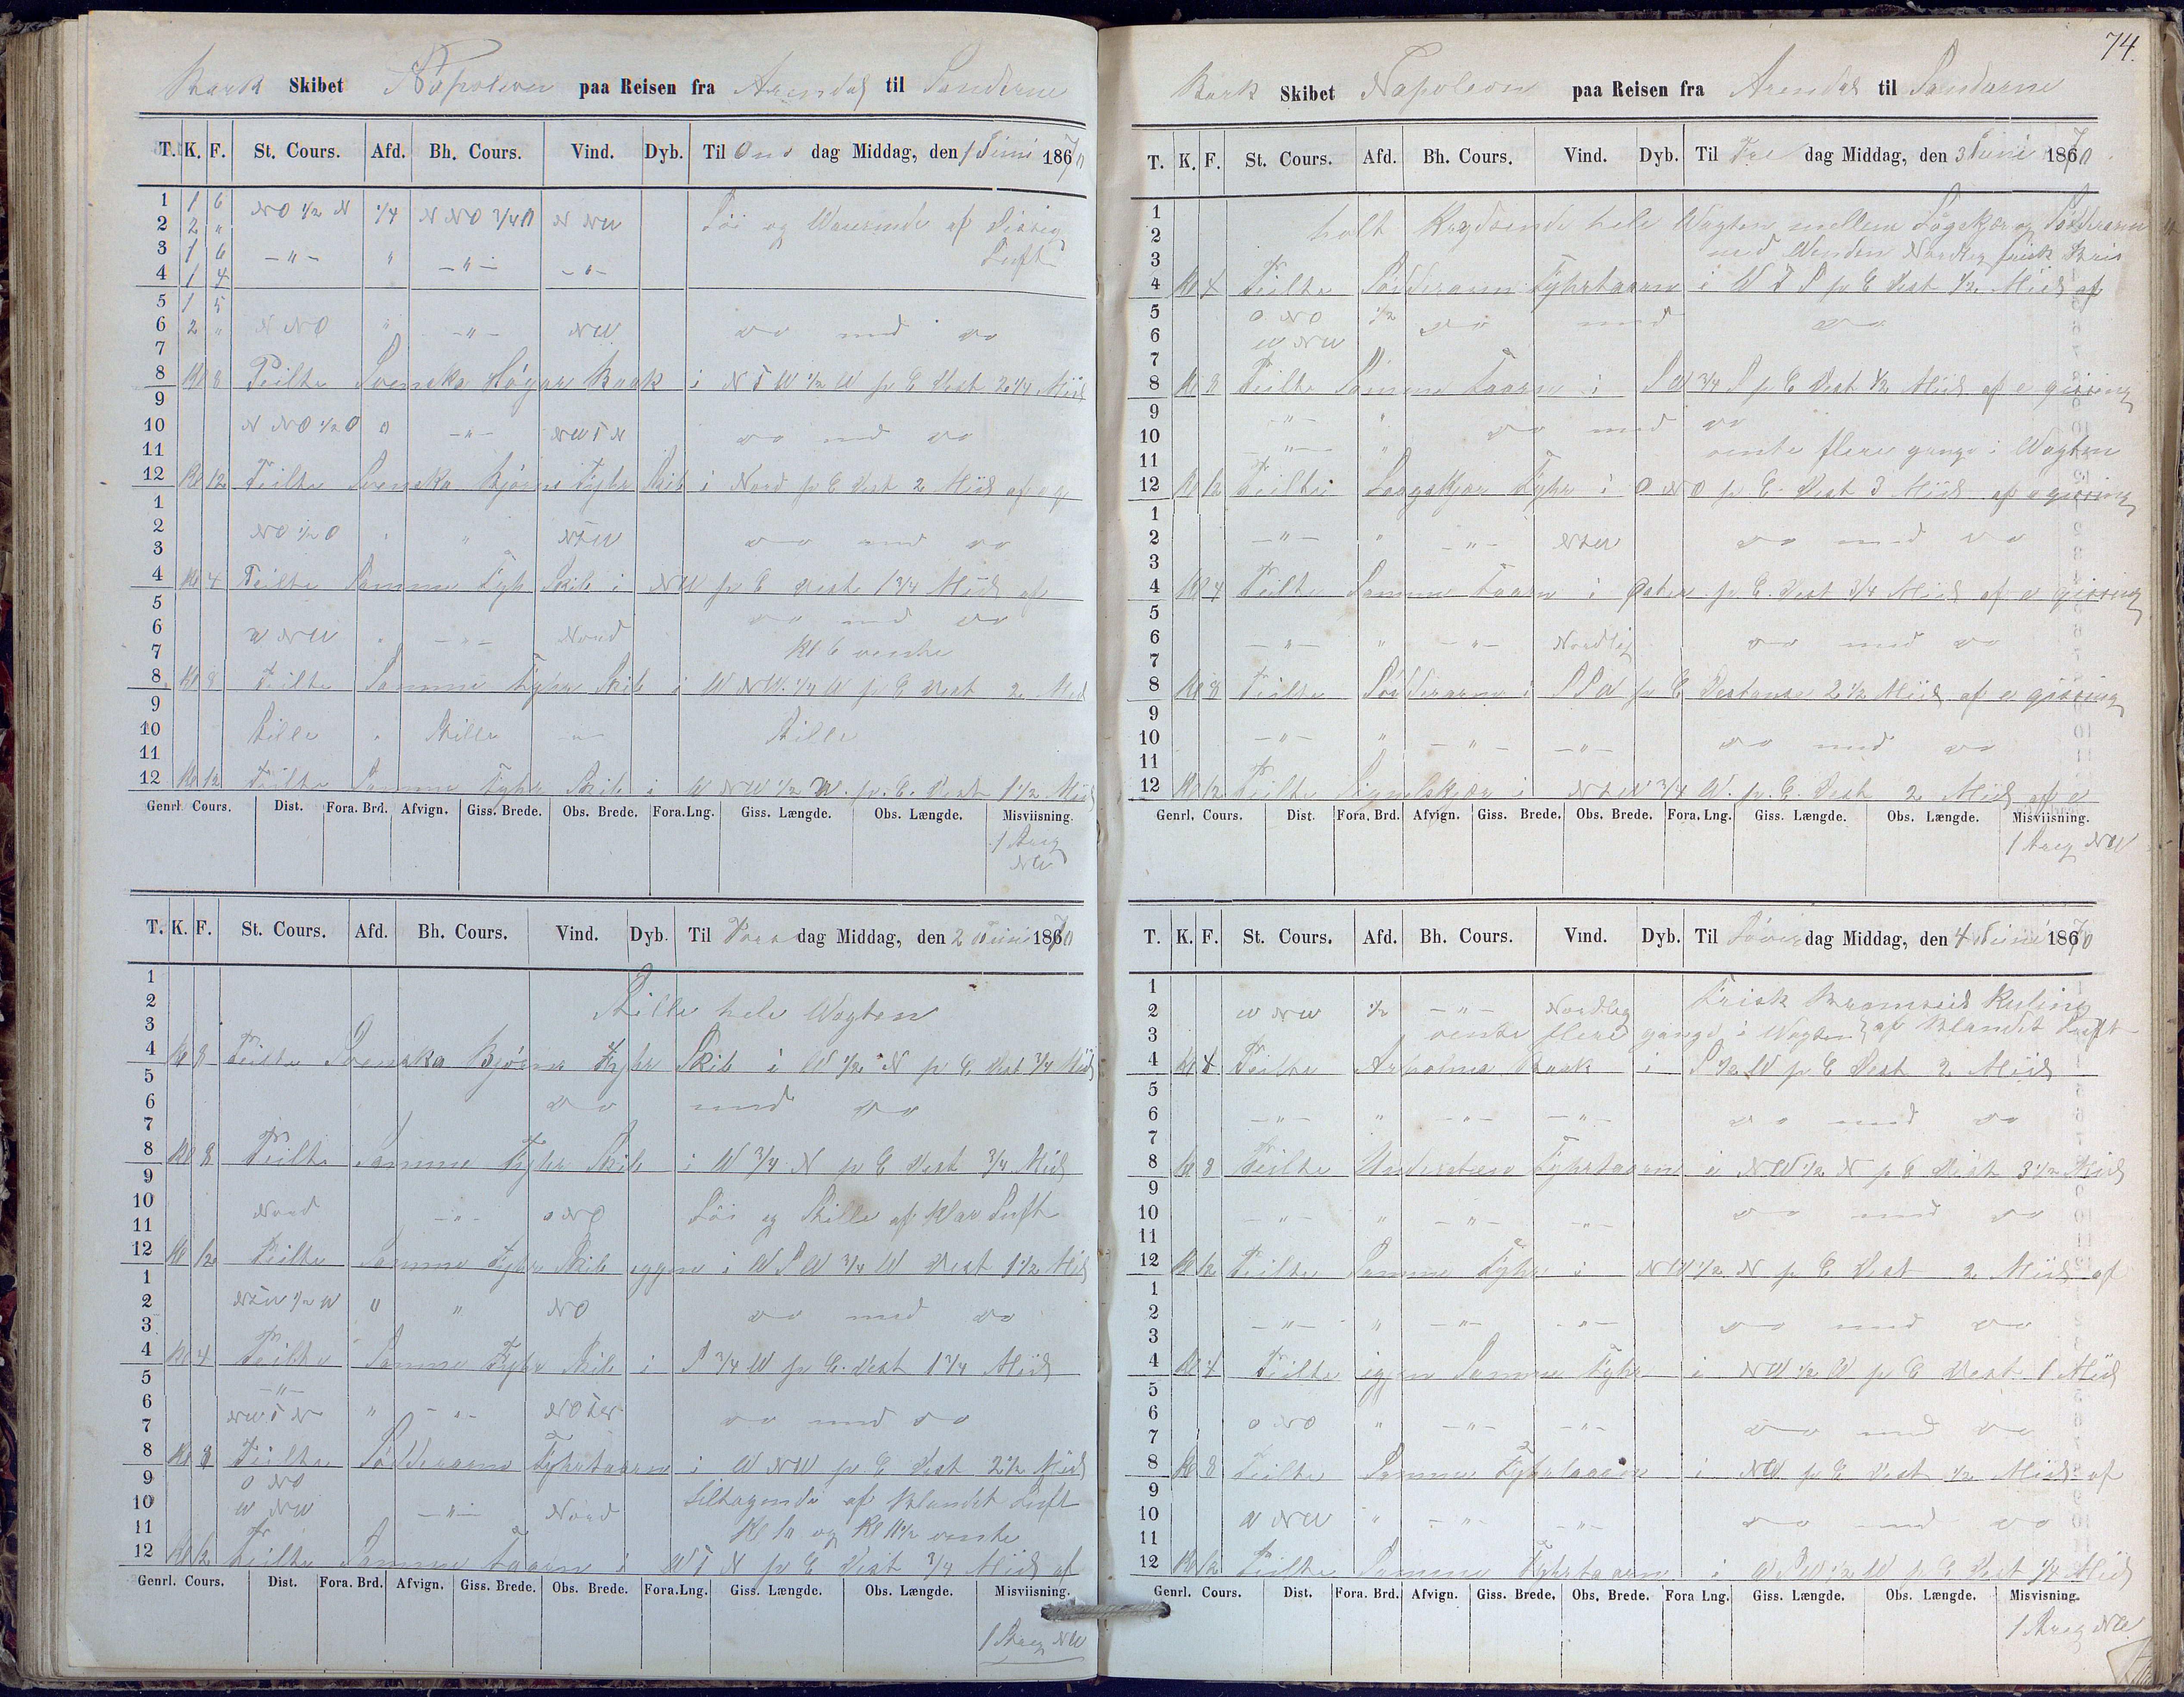 Bark Skibet Napoleon paa Reisen fra Arendal til
T. K. F. St. Cours. Afd. Bh. Cours. Vind. Dyb. Til Ons dag Middag, den 1 Juni 1870
1 1 6 NO 1/2 N 1/4 N NO 3/4 O N NW Löi og af Disig
2 2 "
3 1 6 -"- " -"- -"- Luft
4 1 4
5 1 5
6 2 " N NO " -"- NW do med do
7
8 Kl 8 Peilte Svenska Högar Baak i N T W 1/2 W p C Dest 2 1/4 Miil
9
10 N NO 1/2 O " -"- NW T N do med do
11
12 Kl 12 Peilte Svenska Björns Fyhr Skib i Nord p C Dest 2 Miil af
1
2 NO 1/2 O " " N T W do med do
3
4 Kl 4 Peilte Samme Fyhr Skib i NW p C Dest 1 3/4 Miil af
5 do med do
6 W NW " -"- Nord
7 Kl 6 vente
8 Kl 8 Peilte Samme Fyhr Skib i W NW 1/4 W p C Dest 2 Miil
9
10 Stille " Stille -"- Stille
11
12 Kl 12 Peilte Samme Fyhr Skib i W NW 1/2 W. p. C. Dest 1 1/2 Miil
Genrl. Cours. Dist. Fora. Brd. Afvign. Giss. Brede. Obs. Brede. Fora.Lng. Giss. Længde. Obs. Længde. Misviisning.
1 Streg
NW
T. K. F. St. Cours. Afd. Bh. Cours. Vind. Dyb. Til Tors dag Middag, den 2 Juni 1870
1
2 Stille hele Vagten
3
4 Kl 8 Peilte Svenska Björns Fyhr Skib i W 1/2 N p C Dest 3/4 Miil
5
6 do med do
7
8 Kl 8 Peilte Samme Fyhr Skib i W 3/4 N p C Dest 3/4 Miil
9
10 Nord -"- O NO Löi og Stille af Klar Luft
11
12 Kl 12 Peilte Samme Fyhr Skib igjen i W S W 3/4 W Dest 1 1/2 Miil
1
2 N T W 1/2 W " " NO do med do
3
4 Kl 4 Peilte Samme Fyhr Skib i S 3/4 W p C. Dest 1 3/4 Miil
5 -"-
6 NW T N " -"- NO T N do med do
7
8 Kl 8 Peilte Södderarm Fyhrtaarn i W NW p C Dest 2 1/2 Miil
9 O NO
10 W NW -"- Nord tiltagende af Blandet Luft
11 Kl 10 og Kl 11 1/2 vente
12 Kl 12 Peilte Samme taarn i W T N p C Dest 3/4 Miil af
Genrl. Cours. Dist. Fora. Brd. Afvign. Giss. Brede. Obs. Brede. Fora.Lng. Giss. Længde. Obs. Længde. Misviisning.
1 Streg NW
74.
Bark Skibet Napoleon paa Reisen fra Arendal til
T. K. F. St. Cours. Afd. Bh. Cours. Vind. Dyb. Til Fre dag Middag, den 3 Juni 1870
1
2 holt Krydsende hele Vagten mellem Lågskjær og Södderarm
3 med Vinden Nordlig frisk Bris
4 Kl 4 Peilte Södderarm Fyhrtaarn i W T S p C Dest 1/2 Miil af
5 O NO 1/2 do med do
6 W NW
7
8 Kl 8 Peilte Samme taarn i S W 3/4 S p C Dest 1/2 Miil af e gissing
9 -"- "
10 -"- " do med do
11 vente flere gange i Vagten
12 Kl 12 Peilte Laagskjær Fyhr i O NO p C. Dest 3 Miil af e gissing
1
2 -"- " -"- N T W do med do
3
4 Kl 4 Peilte Samme Taarn i Osten p. C. Dest 3/4 Miil af e gissing
5
6 -"- " -"- Nordlig do med do
7
8 Kl 8 Peilte Södderarm i S S W p C Destanse 2 1/2 Miil af e gissing
9
10 -"- " -"- -"- do med do
11
12 Kl 12 Peilte Signelskjær i N T W 3/4 W. p. C. Dest 2 Miil af e
Genrl. Cours. Dist. Fora. Brd. Afvign. Giss. Brede. Obs. Brede. Fora. Lng. Giss. Længde. Obs. Længde. Misviisning.
1 Streg NW
T. K. F. St. Cours. Afd. Bh. Cours. Vind. Dyb. Til Löver dag Middag, den 4 Juni 1870
1 Frisk Bramseils Kuling
2 W NW 1/2 -"- Nordlig
3 vente flere gange i Vagten af Blandet Luft
4 Kl 4 Peilte Arholma Baak i S 1/2 W p C Dest 2 Miil
5
6 -"- " -"- -"- do med do
7
8 Kl 8 Peilte Understeen Fyhrtaarn i NW 1/2 N p C Dist 3 1/2 Miil
9
10 -"- " -"- -"- do med do
11
12 Kl 12 Peilte Samme Fyhr i NW 1/2 N p C Dest 2 Miil af
1
2 -"- " -"- -"- do med do
3
4 Kl 4 Peilte igjen Samme Fyhr i NW 1/2 W p C Dest 1 Miil
5
6 O NO " -"- -"- do med do
7
8 Kl 8 Peilte Samme Fyhrtaarn i NW p C Dest 1/2 Miil af
9
10 W NW " -"- -"- do med do
11
12 Kl 12 Peilte Samme Fyhrtaarn i W S W 1/2 W p C Dest 1/4 Miil
Genrl. Cours. Dist. Fora. Brd. Afvign. Giss. Brede. Obs. Brede. Fora Lng. Giss. Længde. Obs. Længde. Misvisning.
1 Streg NW